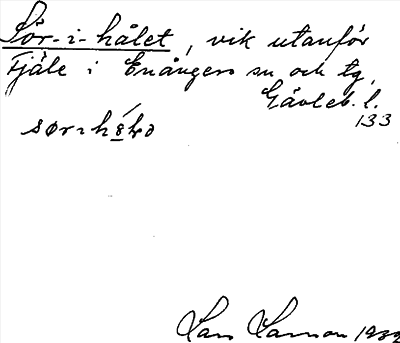 Sör-i-hålet, vik utanför
Fjäle i Enångers sn och tg,
Gävleb. l.
133
Lars Larsson 1932